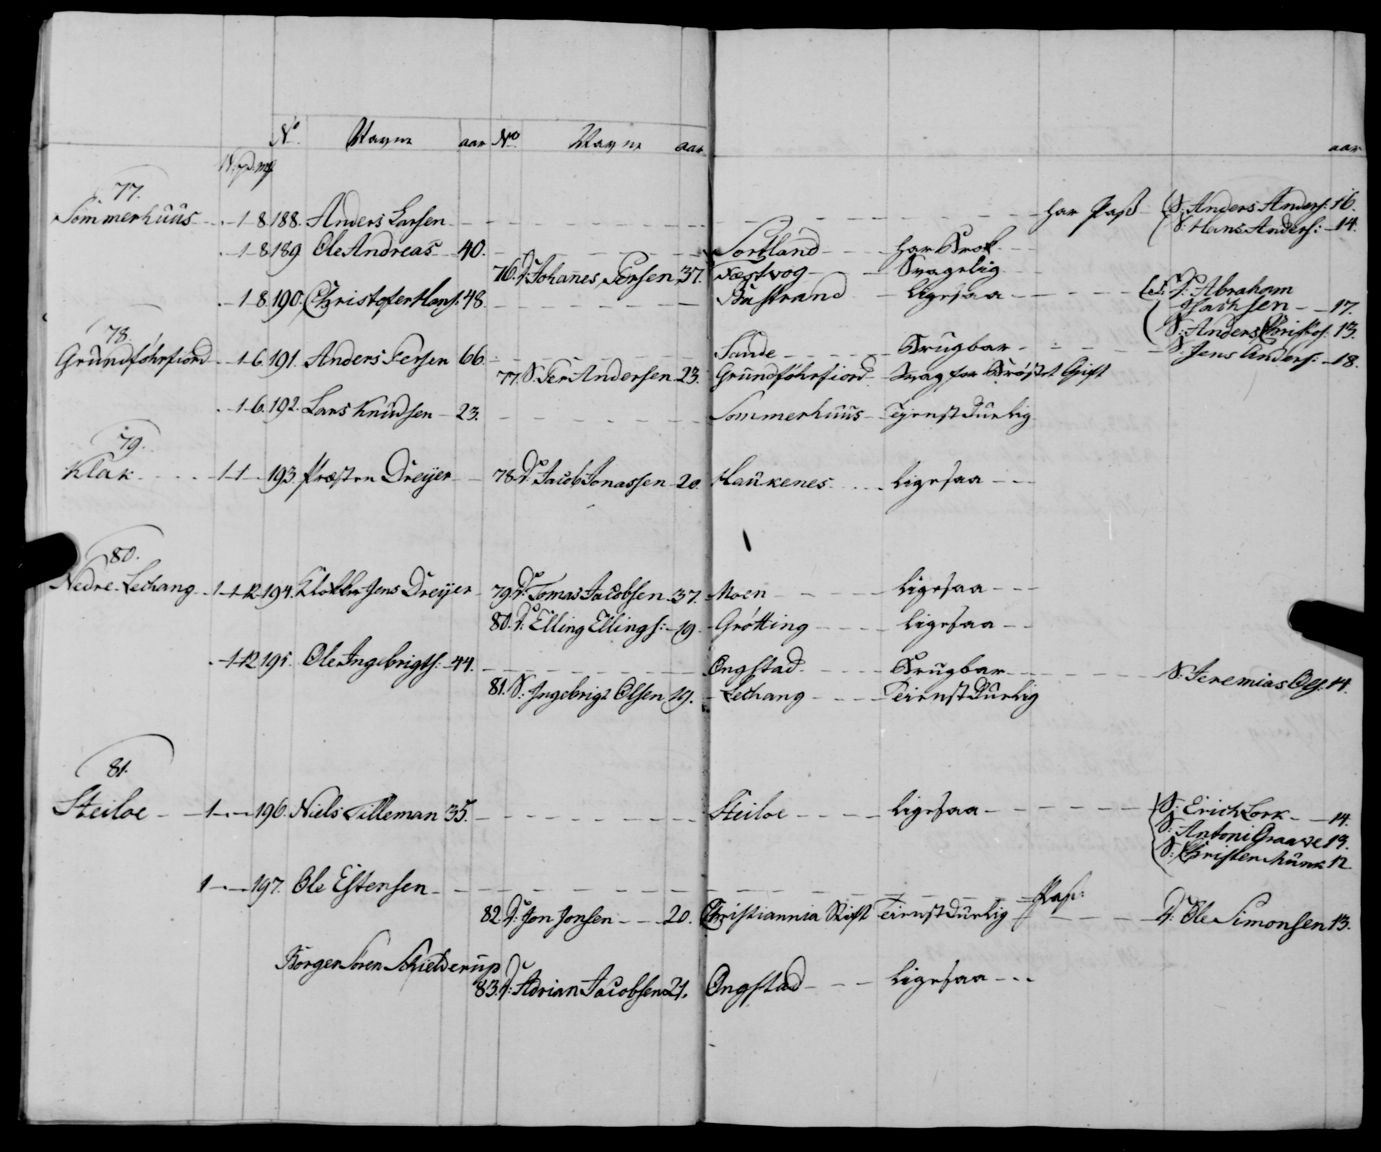 No Navne aar No Navne aar aar
V. pd. mk
77.
Sommerhuus 1 8 188. Anders Larsen har Pass S: Anders Anders: 16.
S: Hans Anders: 14.
1 8 189 Ole Andreas 40. Sortland har Brok
76. D: Johanes Persen 37. Næstvog Svagelig
1 8 190. Christofer Hans: 48. Bustrand Ligesaa D: Abraham
Isachsen 17.
S: Anders Christof. 13.
78.
Grundføhrfiord 1 6 191. Anders Persen 66 Sande Brugbar S. Jens Anders: 18.
77. S. Per Andersen 23. Grundføhrfiord Svag for Brøstet Gift
1 6 192. Lars Knudsen 23. Sommerhuus Tienstdurlig
79.
Klak 1 1 193. Præsten Dreyer 78. D: Jacob Jonassen 20. Haukenes Ligesaa
80.
Nedre Lechang 1 1 12 194. Klokker Jens Dreyer 79. D: Tomas Jacobsen 37. Moen Ligesaa
80. D: Elling Ellings: 19. Grøtting Ligesaa
1 12 195 Ole Ingebrigts: 44. Ongstad Brugbar S. Jeremias Ols: 14.
81. S: Ingebrigt Olsen 19. Lechang Tienstdurlig
81.
Steiloe 1 196. Niels Tilleman 35. Steiloe Ligesaa S: Erich Lork 14.
S: Antoni Graave 13.
S: Christen Munk 12.
1 197. Ole Estensen Pass:
82. D: Jon Jonsen 20. Christiannia Stift Tienstdurlig D: Ole Simonsen 13.
Borger Søren Schielderup
83. D: Adrian Jacobsen 21. Ongstad Ligesaa